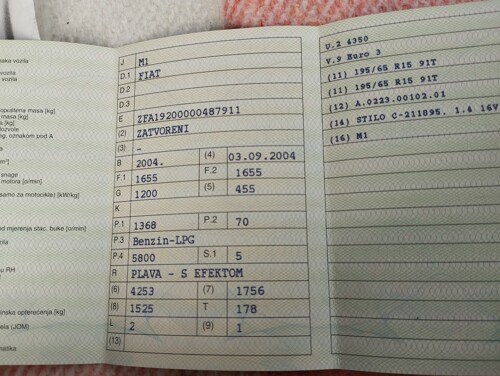 J M1
D.1 FIAT
D.2
D.3
E ZFA19200000487911
(2) ZATVORENI
(3) -
B 2004. (4) 03.09.2004
F.1 1655 F.2 1655
G 1200 (5) 455
K
P.1 1368 P.2 70
P.3 Benzin-LPG
P.4 5800 S.1 5
R PLAVA - S EFEKTOM
(6) 4253 (7) 1756
(8) 1525 T 178
L 2 (9) 1
(13)
vozila
vozila
opuštena masa [kg]
masa [kg]
[kg]
ozvole
g. oznakom pod A
snage
motora [o/min]
samo za motocikle) [kW/kg]
d mjerenja stac. buke [o/min]
u RH
inska opterećenja [kg]
ela (JOM)
matika
U.2 4350
V.9 Euro 3
(11) 195/65 R15 91T
(11) 195/65 R15 91T
(12) A.0223.00102.01
(14) STILO C-211895. 1.4 16V
(16) M1